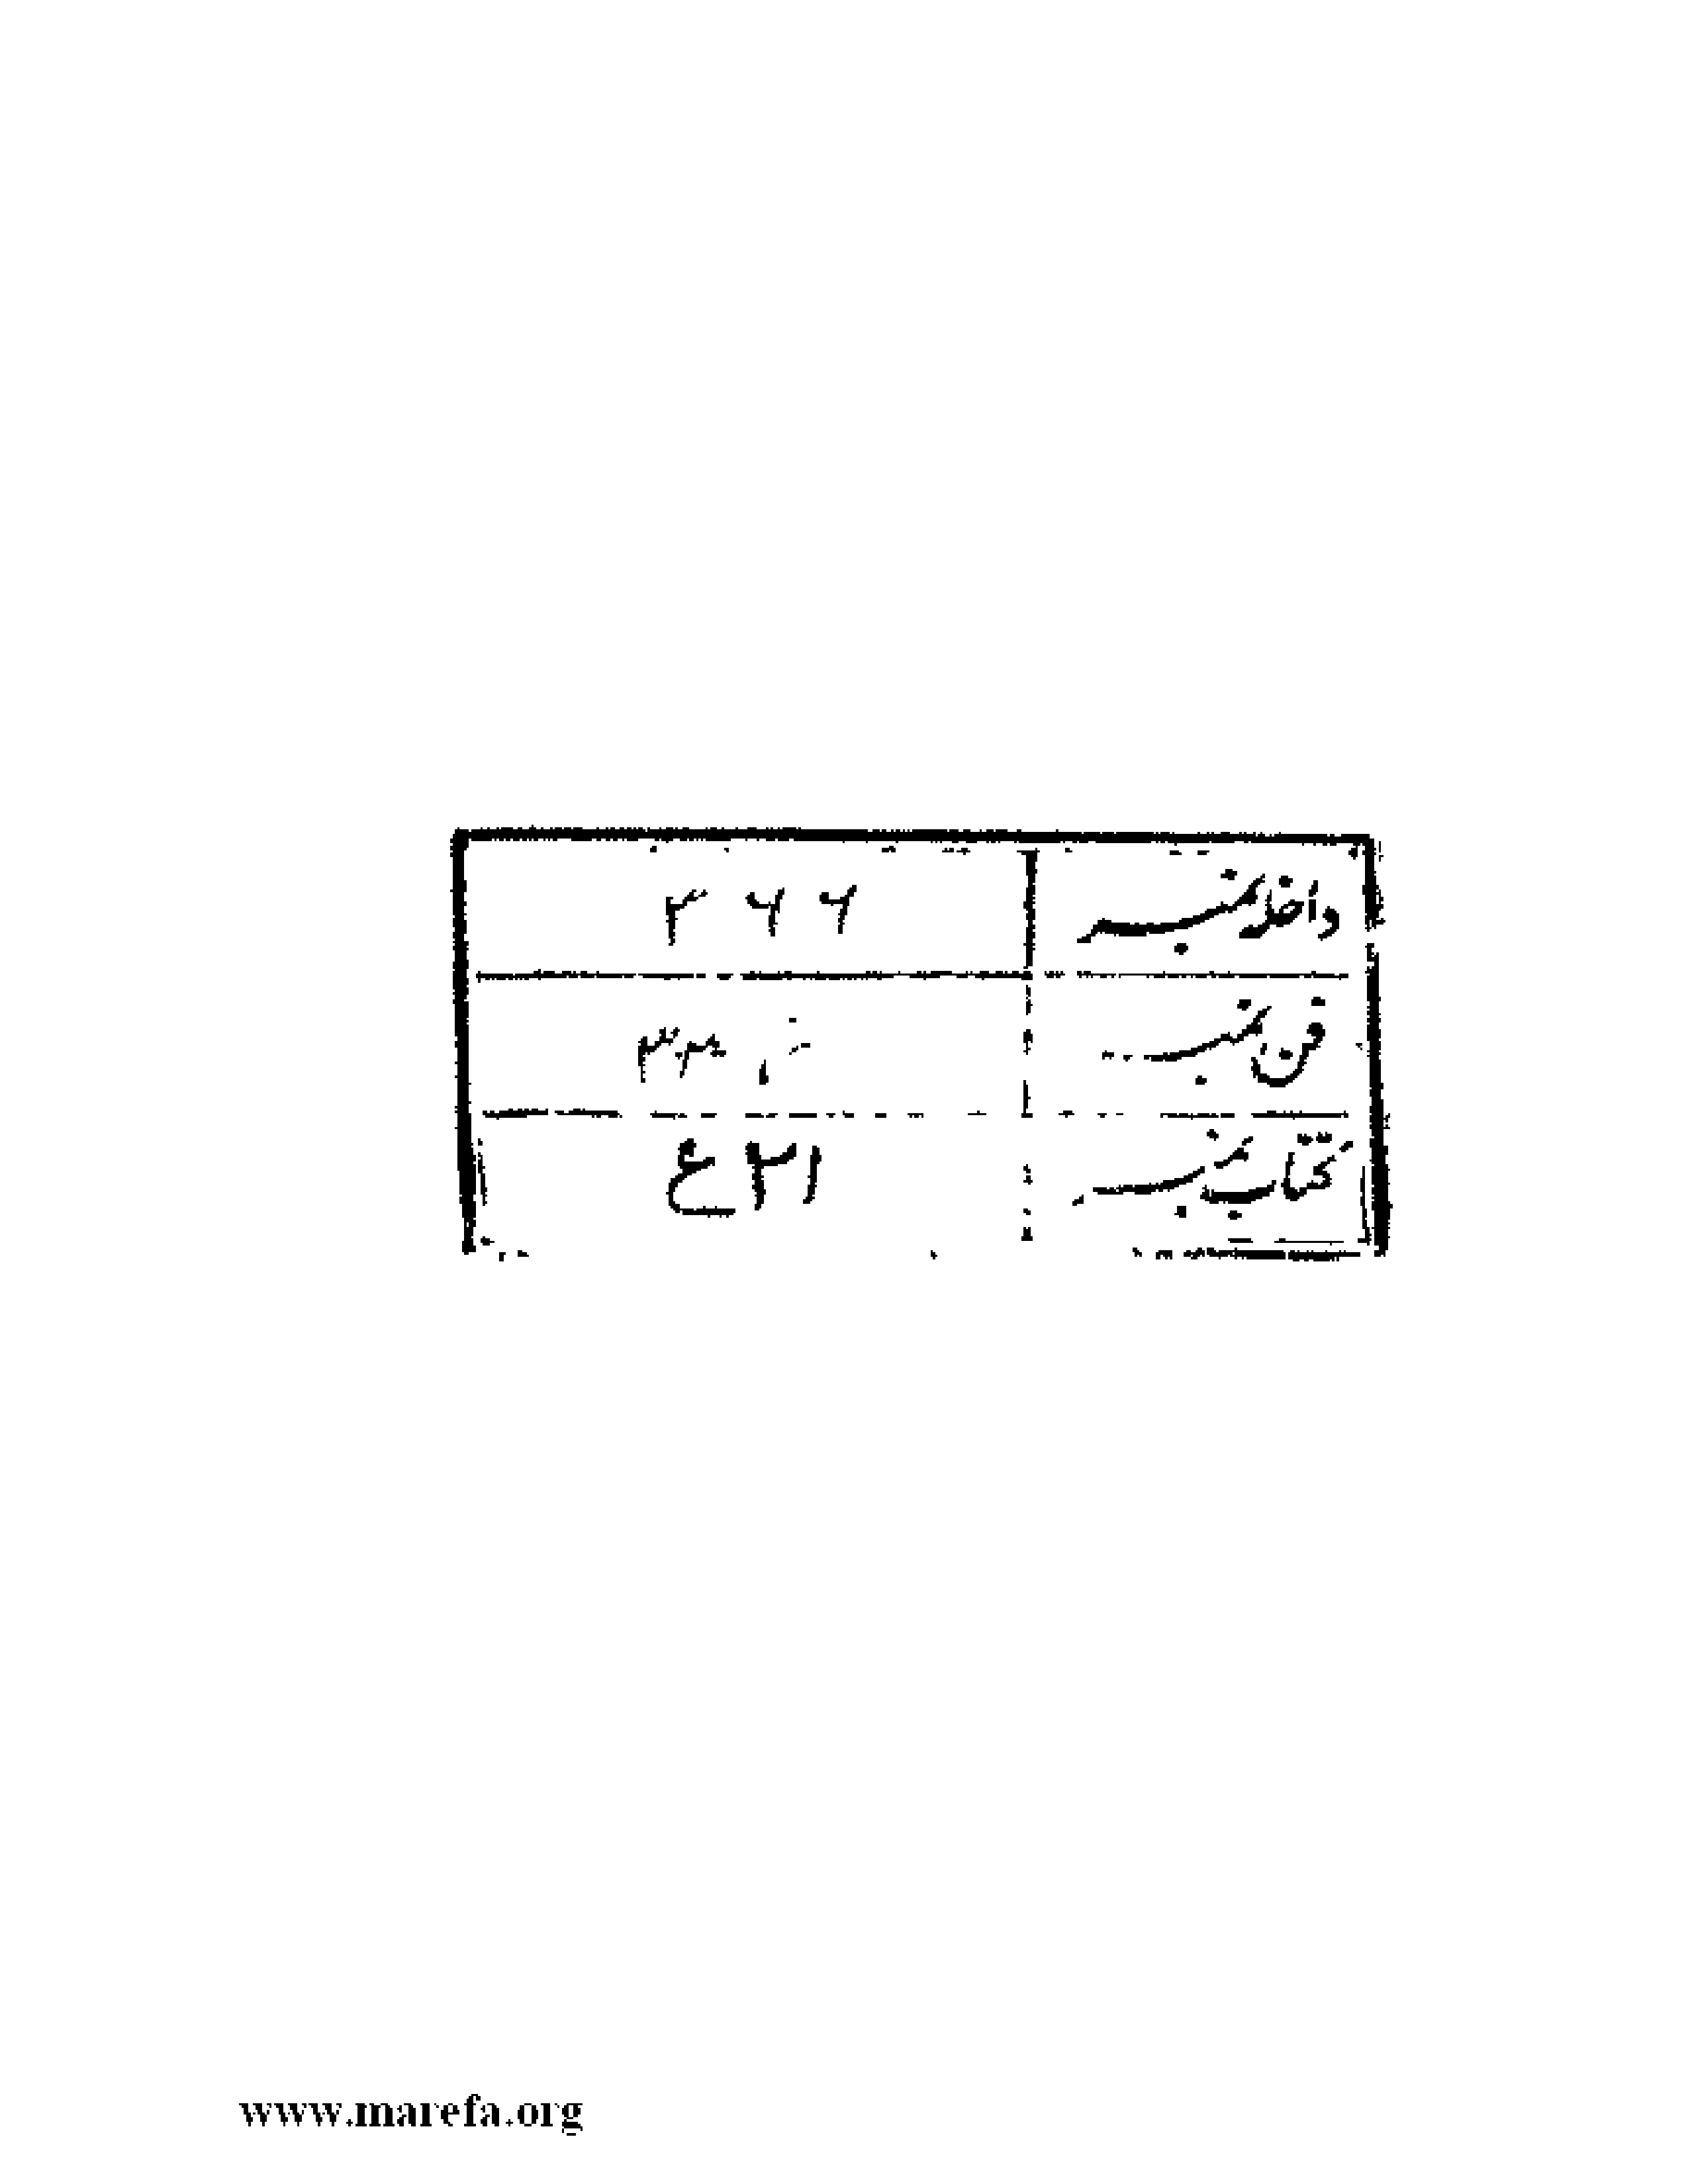 داخلہ نمبر ۲ ۶ ۶
فن نمبر
کتاب نمبر ع ۲۱
www.marefa.org